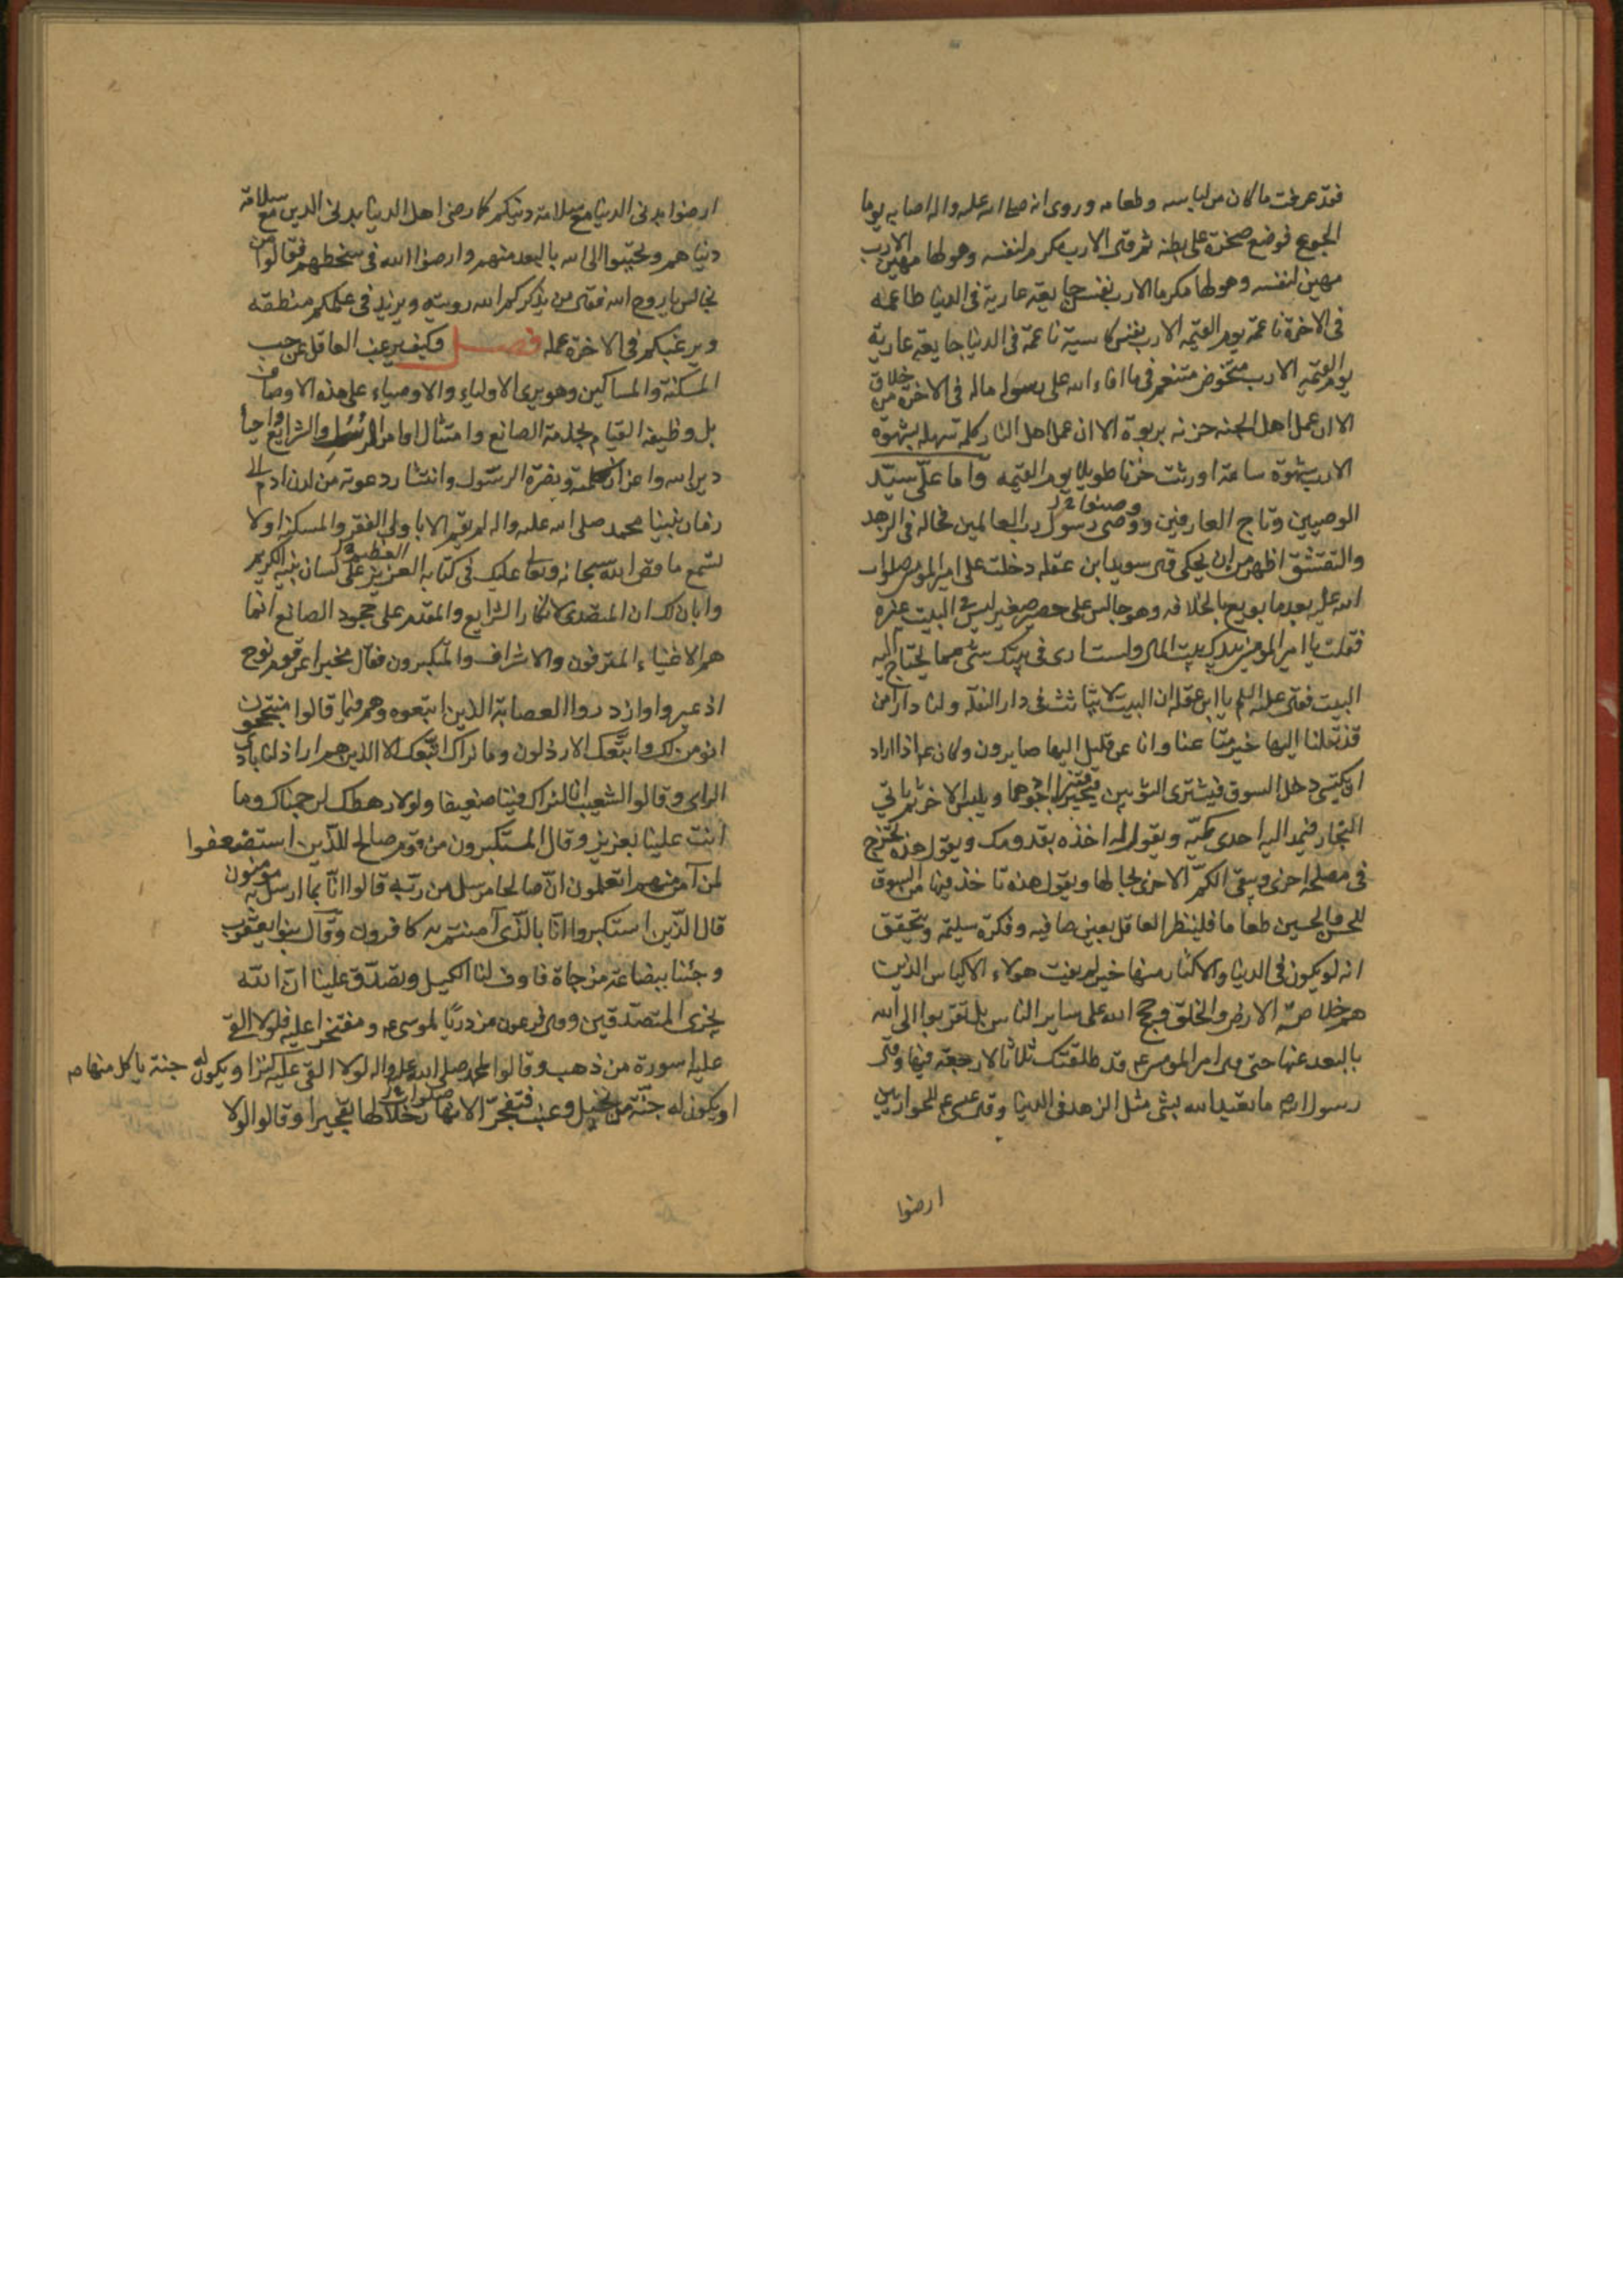 فقد عرفت ما كان من لباسه وطعامه وروى انه صلى الله عليه واله اصابه يوما
الجوع فوضع صخرة على بطنه ثم قال الا رب مكرم لنفسه وهو لها مهين الا رب
مهين لنفسه وهو لها مكرم الا رب نفس جايعة عارية فى الدنيا طاعمه
فى الاخرة ناعمة يوم القيمه الا رب نفس كاسية ناعمة فى الدنيا جايعة عارية
يوم القيمه الا رب متخوض متنعم فى ما افاء الله على رسوله ماله فى الاخرة من خلاق
الا ان عمل اهل الجنه حزنه بربوة الا ان عمل اهل النار كلمة سهله بشهوة
الا رب شهوة ساعة اورثت حزنا طويلا يوم القيمه واما على سيد
الوصيين وتاج العارفين ووصى رسول رب العالمين فحاله فى الزهد
والتقشق اظهر من ان يحكى قال سويد ابن عقله دخلت على امير المومنين صلوات
الله عليه بعد ما بويع بالخلافه وهو جالس على حصير صغير ليس فى البيت غيره
فقلت يا امير المومنين بيدك بيت المال ولست ارى فى بيتك شى مما يحتاج اليه
البيت فقال عليه السلم يا ابن عقله ان البيت لا يتاثث فى دار النقله ولنا دار امن
قد نقلنا اليها خير متاعنا وانا عن قليل اليها صايرون وكان ع اذا اراد
ان يكتسى دخل السوق فيشترى الثوبين فيخير قنبرا اجودهما ويلبس الاخر ثم ياتى
النجار فيمد اليه احدى كميه ويقول له اخذه بقدومك ويقول هذه تخرج
فى مصلحة اخرى ويبقى الكم الاخرى بحالها ويقول هذه تاخذ فيها من السوق
للحسن والحسين طعاما فلينظر العاقل بعين صافيه وفكرة سليمه ويتحقق
انه لو يكون فى الدنيا والاكثار منها خير لم يفت هولاء الاكياس الذين
هم خلاصة الارض والخلق وحجج الله على ساير الناس بل تقربوا الى الله
بالبعد عنها حتى قال امير المومنين ع قد طلقتك ثلاثا لا رجعة فيها وقال
رسول الله ص ما تعبد الله بشى مثل الزهد فى الدنيا وقال عيسى ع للحواريين
ارضوا
ارضوا بدنى الدنيا مع سلامة دينكم كما رضى اهل الدنيا بدنى الدين مع سلامة
دنياهم وتحببوا الى الله بالبعد منهم وارضوا الله فى سخطهم فقالوا من
نجالس يا روح الله فقال من يذكركم الله رويته ويزيد فى علمكم منطقه
ويرغبكم فى الاخرة عمله فصل وكيف يرغب العاقل عن حب
المسكنة والمساكين وهو يرى الاولياء والاوصياء على هذه الاوصاف
بل وظيفة القيام بخدمة الصانع وامتثال اوامر الرسل والشرايع واحيا
دين الله واعزاز كلمته ونصرة الرسول وانتشار دعوته من لدن ادم الى
زمان نبينا محمد صلى الله عليه واله لم يقم الا باولى الفقر والمسكنة اولا
تسمع ما قص الله سبحانه وتعالى عليك فى كتابه العزيز على لسان نبيه الكريم
وابان لك ان المتصدى لانكار الشرايع والمقدم على جحود الصانع انما
هم الاغنياء المترفون والاشراف والمتكبرون فقال مخبرا عن قوم نوح
اذ عيروا وازدروا العصابة الذين اتبعوه وهم فيما قالوا
انومن لك واتبعك الارذلون وما نراك اتبعك الا الذين هم اراذلنا بادى
الراى وقالوا لشعيب انا لنراك فينا ضعيفا ولولا رهطك لرجمناك وما
انت علينا بعزيز وقال المستكبرون من قوم صالح للذين استضعفوا
لمن آمن منهم اتعلمون ان صالحا مرسل من ربه قالوا انا بما ارسل به مومنون
قال الذين استكبروا انا بالذى آمنتم به كافرون وقال بنوا يعقوب
وجئنا ببضاعة مزجاة فاوف لنا الكيل وتصدق علينا ان الله
يجزى المتصدقين وقال فرعون مزدريا لموسى ع ومفتخرا عليه فلولا القى
عليه اسورة من ذهب وقالوا لمحمد صلى الله عليه واله لولا القى عليه كنز او يكون له جنة ياكل منها
او يكون له جنة من نخيل وعنب فتفجر الانهار خلالها تفجيرا وقالوا لولا